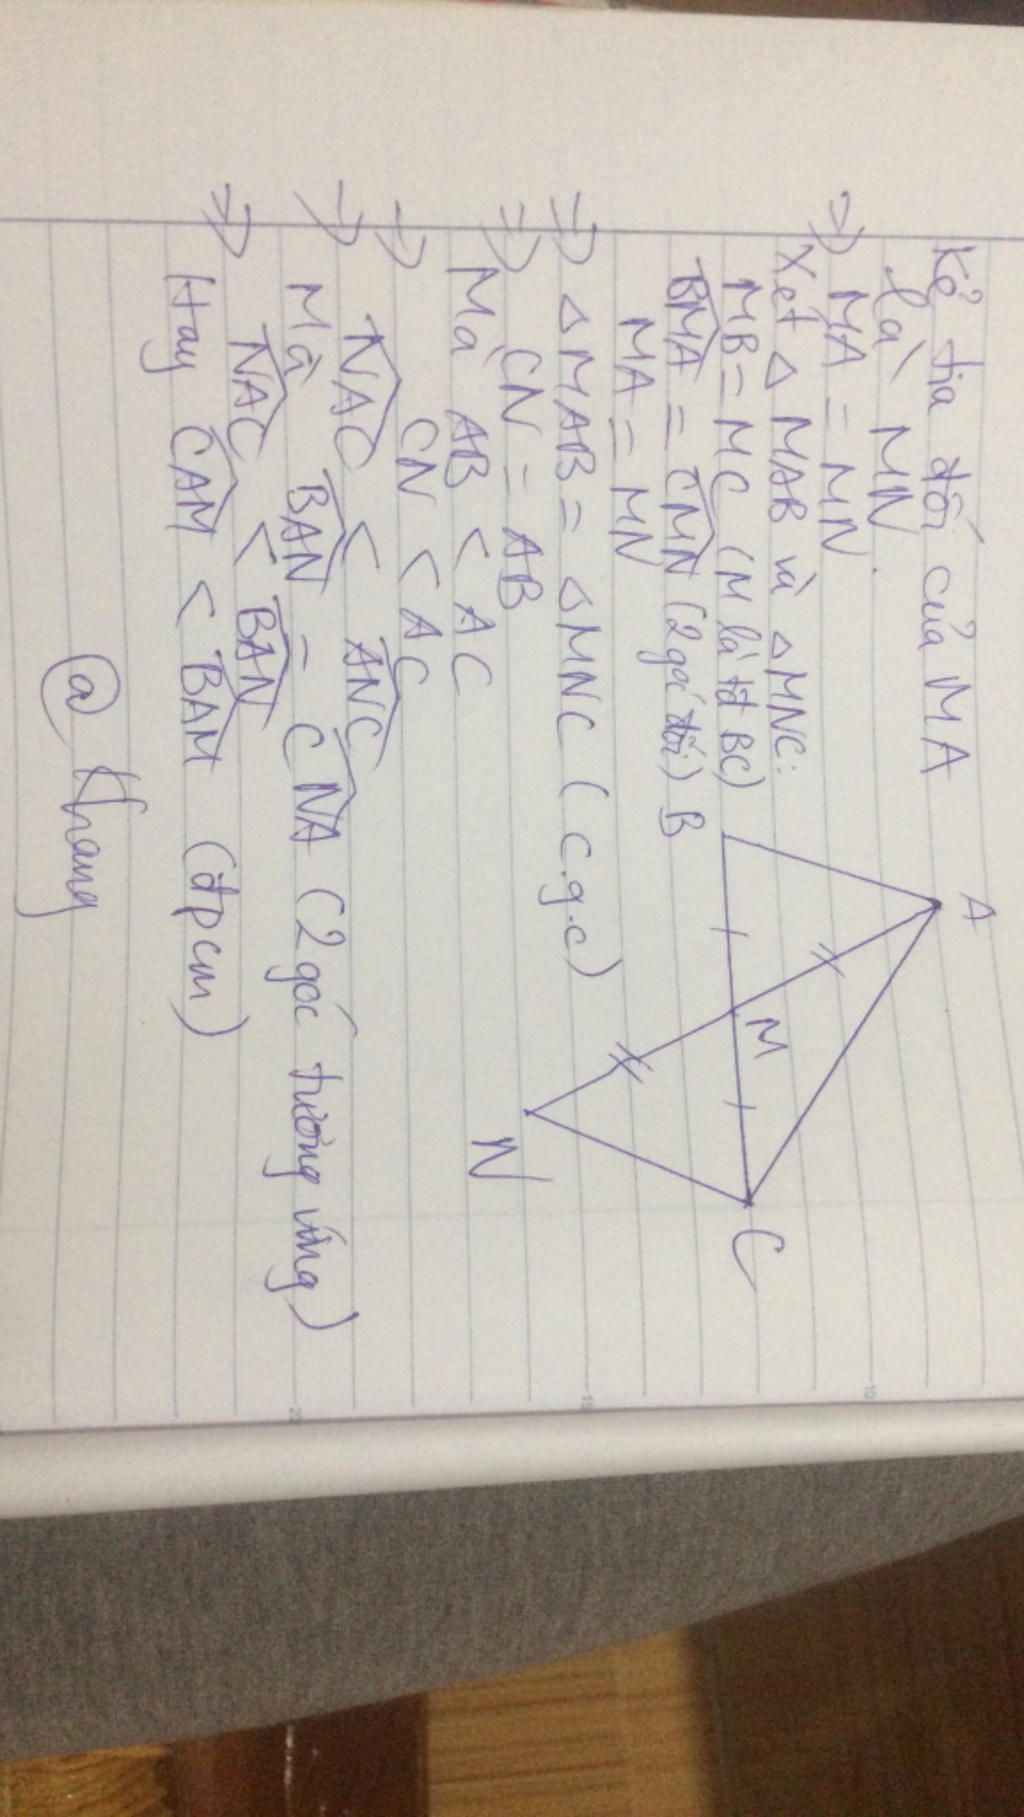 Kẻ tia đối của MA
là MN.
⇒ MA = MN
Xét △ MAB và △MNC:
MB = MC (M là tđ BC)
BMA = CMN (2 góc đối)
MA = MN
⇒ △MAB = △MNC (c.g.c)
⇒ CN = AB
Mà AB < AC
⇒ CN < AC
⇒ NAC < ANC
Mà BAN = CNA (2 góc tương ứng)
⇒ NAC < BAN
Hay CAM < BAM (đpcm)
@ Khang
A
B
M
C
N
10
15
20